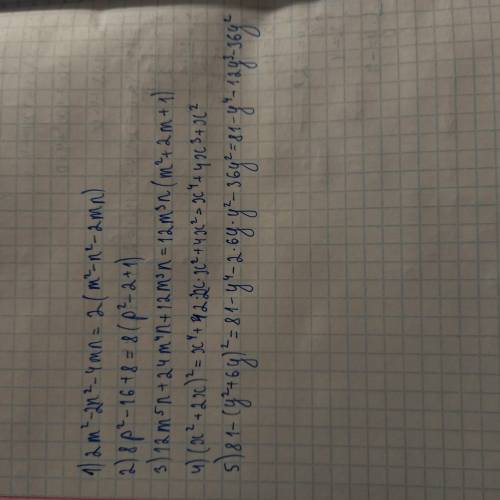 1) 2m²-2n²-4mn = 2(m²-n²-2mn)
2) 8p²-16+8 = 8(p²-2+1)
3) 12m⁵n+24m⁴n+12m³n = 12m³n(m²+2m+1)
4) (x²+2x)² = x⁴+2·2x·x²+4x² = x⁴+4x³+x²
5) 81-(y²+6y)² = 81-y⁴-2·6y·y²-36y² = 81-y⁴-12y³-36y²